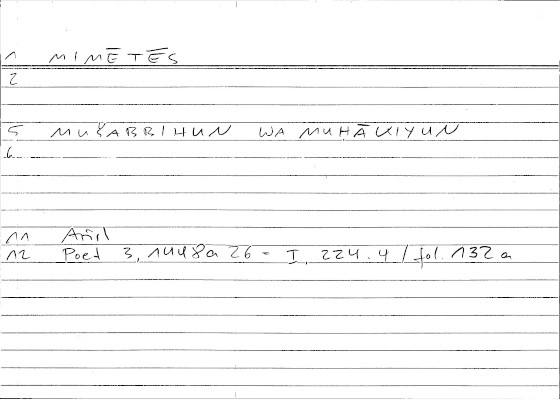 1 MIMĒTĒS
2
5 MUŠABBIHUN WA MUḤĀKIYUN
6
11 Arist
12 Poet 3, 1448a 26 = I, 224.4 / fol. 132a